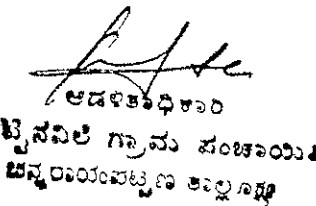 ಆಡಳಿತಾಧಿಕಾರಿ
ಟ್ಟಿನವಿಲೆ ಗ್ರಾಮ ಪಂಚಾಯಿ
ಚನ್ನರಾಯಪಟ್ಟಣ ತಾಲ್ಲೂಕು